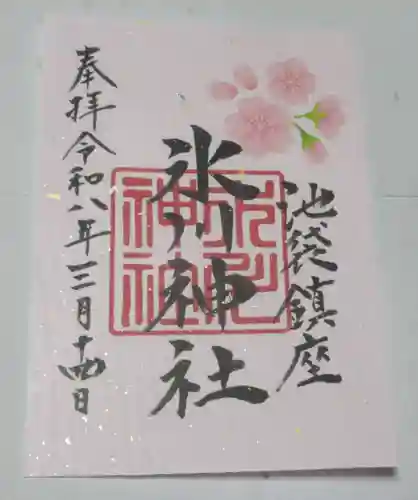 池袋鎮座
氷川神社
氷川神社
奉拝令和八年三月十四日